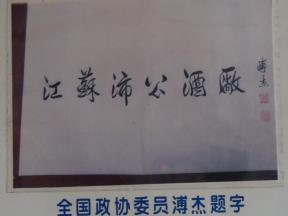 江蘇沛公酒廠
溥杰
全国政协委员溥杰题字